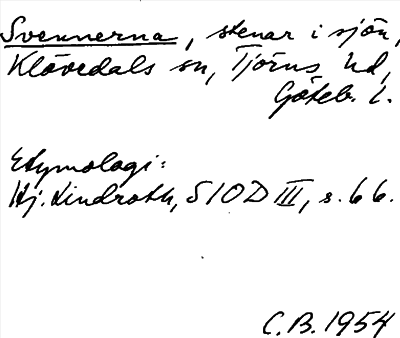 Svennerna, stenar i sjön,
Klövedals sn, Tjörns hd,
Göteb. l.
Etymologi:
Hj. Lindroth, SIOD III, s. 66.
C.B. 1954